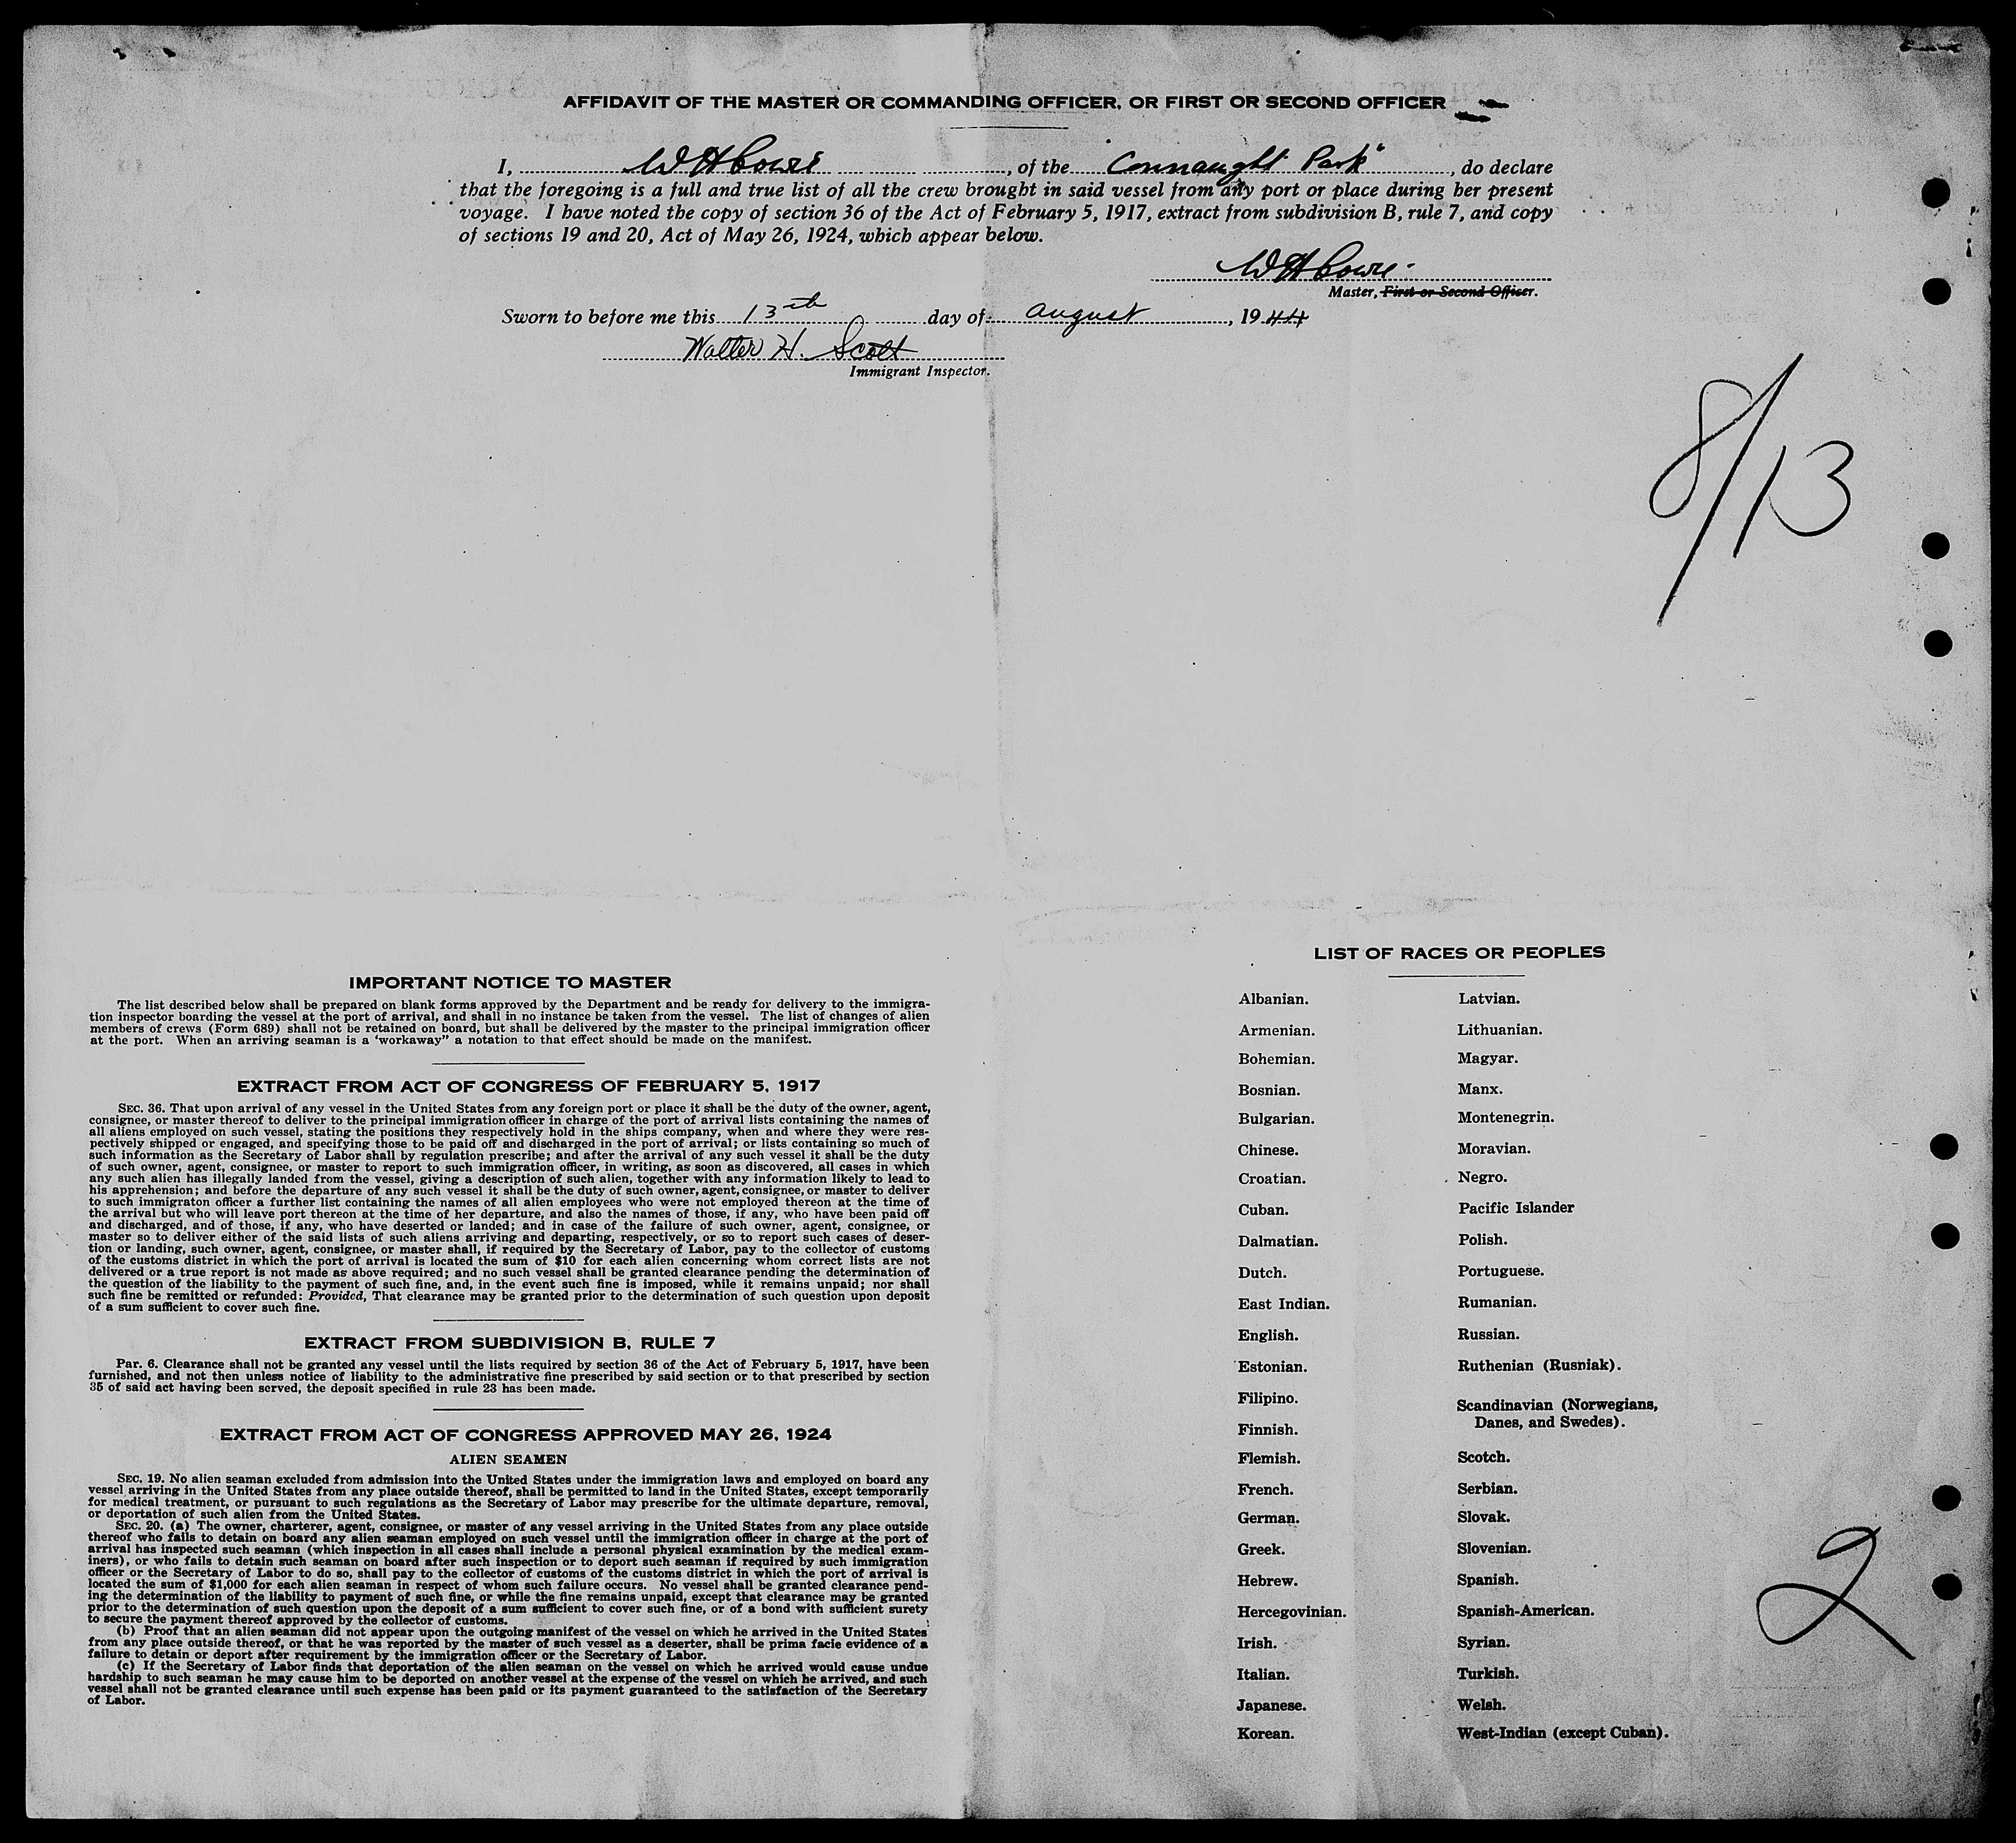 AFFIDAVIT OF THE MASTER OR COMMANDING OFFICER, OR FIRST OR SECOND OFFICER
I, W H Cowe , of the "Connaught Park" , do declare
that the foregoing is a full and true list of all the crew brought in said vessel from any port or place during her present
voyage. I have noted the copy of section 36 of the Act of February 5, 1917, extract from subdivision B, rule 7, and copy
of sections 19 and 20, Act of May 26, 1924, which appear below.
W H Cowe
Master, First or Second Officer.
Sworn to before me this 13th day of August , 1944
Walter H. Scott
Immigrant Inspector.
8/13
IMPORTANT NOTICE TO MASTER
The list described below shall be prepared on blank forms approved by the Department and be ready for delivery to the immigra-
tion inspector boarding the vessel at the port of arrival, and shall in no instance be taken from the vessel. The list of changes of alien
members of crews (Form 689) shall not be retained on board, but shall be delivered by the master to the principal immigration officer
at the port. When an arriving seaman is a 'workaway" a notation to that effect should be made on the manifest.
EXTRACT FROM ACT OF CONGRESS OF FEBRUARY 5, 1917
SEC. 36. That upon arrival of any vessel in the United States from any foreign port or place it shall be the duty of the owner, agent,
consignee, or master thereof to deliver to the principal immigration officer in charge of the port of arrival lists containing the names of
all aliens employed on such vessel, stating the positions they respectively hold in the ships company, when and where they were res-
pectively shipped or engaged, and specifying those to be paid off and discharged in the port of arrival; or lists containing so much of
such information as the Secretary of Labor shall by regulation prescribe; and after the arrival of any such vessel it shall be the duty
of such owner, agent, consignee, or master to report to such immigration officer, in writing, as soon as discovered, all cases in which
any such alien has illegally landed from the vessel, giving a description of such alien, together with any information likely to lead to
his apprehension; and before the departure of any such vessel it shall be the duty of such owner, agent, consignee, or master to deliver
to such immigraton officer a further list containing the names of all alien employees who were not employed thereon at the time of
the arrival but who will leave port thereon at the time of her departure, and also the names of those, if any, who have been paid off
and discharged, and of those, if any, who have deserted or landed; and in case of the failure of such owner, agent, consignee, or
master so to deliver either of the said lists of such aliens arriving and departing, respectively, or so to report such cases of deser-
tion or landing, such owner, agent, consignee, or master shall, if required by the Secretary of Labor, pay to the collector of customs
of the customs district in which the port of arrival is located the sum of $10 for each alien concerning whom correct lists are not
delivered or a true report is not made as above required; and no such vessel shall be granted clearance pending the determination of
the question of the liability to the payment of such fine, and, in the event such fine is imposed, while it remains unpaid; nor shall
such fine be remitted or refunded: Provided, That clearance may be granted prior to the determination of such question upon deposit
of a sum sufficient to cover such fine.
EXTRACT FROM SUBDIVISION B, RULE 7
Par. 6. Clearance shall not be granted any vessel until the lists required by section 36 of the Act of February 5, 1917, have been
furnished, and not then unless notice of liability to the administrative fine prescribed by said section or to that prescribed by section
35 of said act having been served, the deposit specified in rule 23 has been made.
EXTRACT FROM ACT OF CONGRESS APPROVED MAY 26, 1924
ALIEN SEAMEN
SEC. 19. No alien seaman excluded from admission into the United States under the immigration laws and employed on board any
vessel arriving in the United States from any place outside thereof, shall be permitted to land in the United States, except temporarily
for medical treatment, or pursuant to such regulations as the Secretary of Labor may prescribe for the ultimate departure, removal,
or deportation of such alien from the United States.
SEC. 20. (a) The owner, charterer, agent, consignee, or master of any vessel arriving in the United States from any place outside
thereof who fails to detain on board any alien seaman employed on such vessel until the immigration officer in charge at the port of
arrival has inspected such seaman (which inspection in all cases shall include a personal physical examination by the medical exam-
iners), or who fails to detain such seaman on board after such inspection or to deport such seaman if required by such immigration
officer or the Secretary of Labor to do so, shall pay to the collector of customs of the customs district in which the port of arrival is
located the sum of $1,000 for each alien seaman in respect of whom such failure occurs. No vessel shall be granted clearance pend-
ing the determination of the liability to payment of such fine, or while the fine remains unpaid, except that clearance may be granted
prior to the determination of such question upon the deposit of a sum sufficient to cover such fine, or of a bond with sufficient surety
to secure the payment thereof approved by the collector of customs.
(b) Proof that an alien seaman did not appear upon the outgoing manifest of the vessel on which he arrived in the United States
from any place outside thereof, or that he was reported by the master of such vessel as a deserter, shall be prima facie evidence of a
failure to detain or deport after requirement by the immigration officer or the Secretary of Labor.
(c) If the Secretary of Labor finds that deportation of the alien seaman on the vessel on which he arrived would cause undue
hardship to such seaman he may cause him to be deported on another vessel at the expense of the vessel on which he arrived, and such
vessel shall not be granted clearance until such expense has been paid or its payment guaranteed to the satisfaction of the Secretary
of Labor.
LIST OF RACES OR PEOPLES
Albanian.
Armenian.
Bohemian.
Bosnian.
Bulgarian.
Chinese.
Croatian.
Cuban.
Dalmatian.
Dutch.
East Indian.
English.
Estonian.
Filipino.
Finnish.
Flemish.
French.
German.
Greek.
Hebrew.
Hercegovinian.
Irish.
Italian.
Japanese.
Korean.
Latvian.
Lithuanian.
Magyar.
Manx.
Montenegrin.
Moravian.
Negro.
Pacific Islander
Polish.
Portuguese.
Rumanian.
Russian.
Ruthenian (Rusniak).
Scandinavian (Norwegians,
Danes, and Swedes).
Scotch.
Serbian.
Slovak.
Slovenian.
Spanish.
Spanish-American.
Syrian.
Turkish.
Welsh.
West-Indian (except Cuban).
2